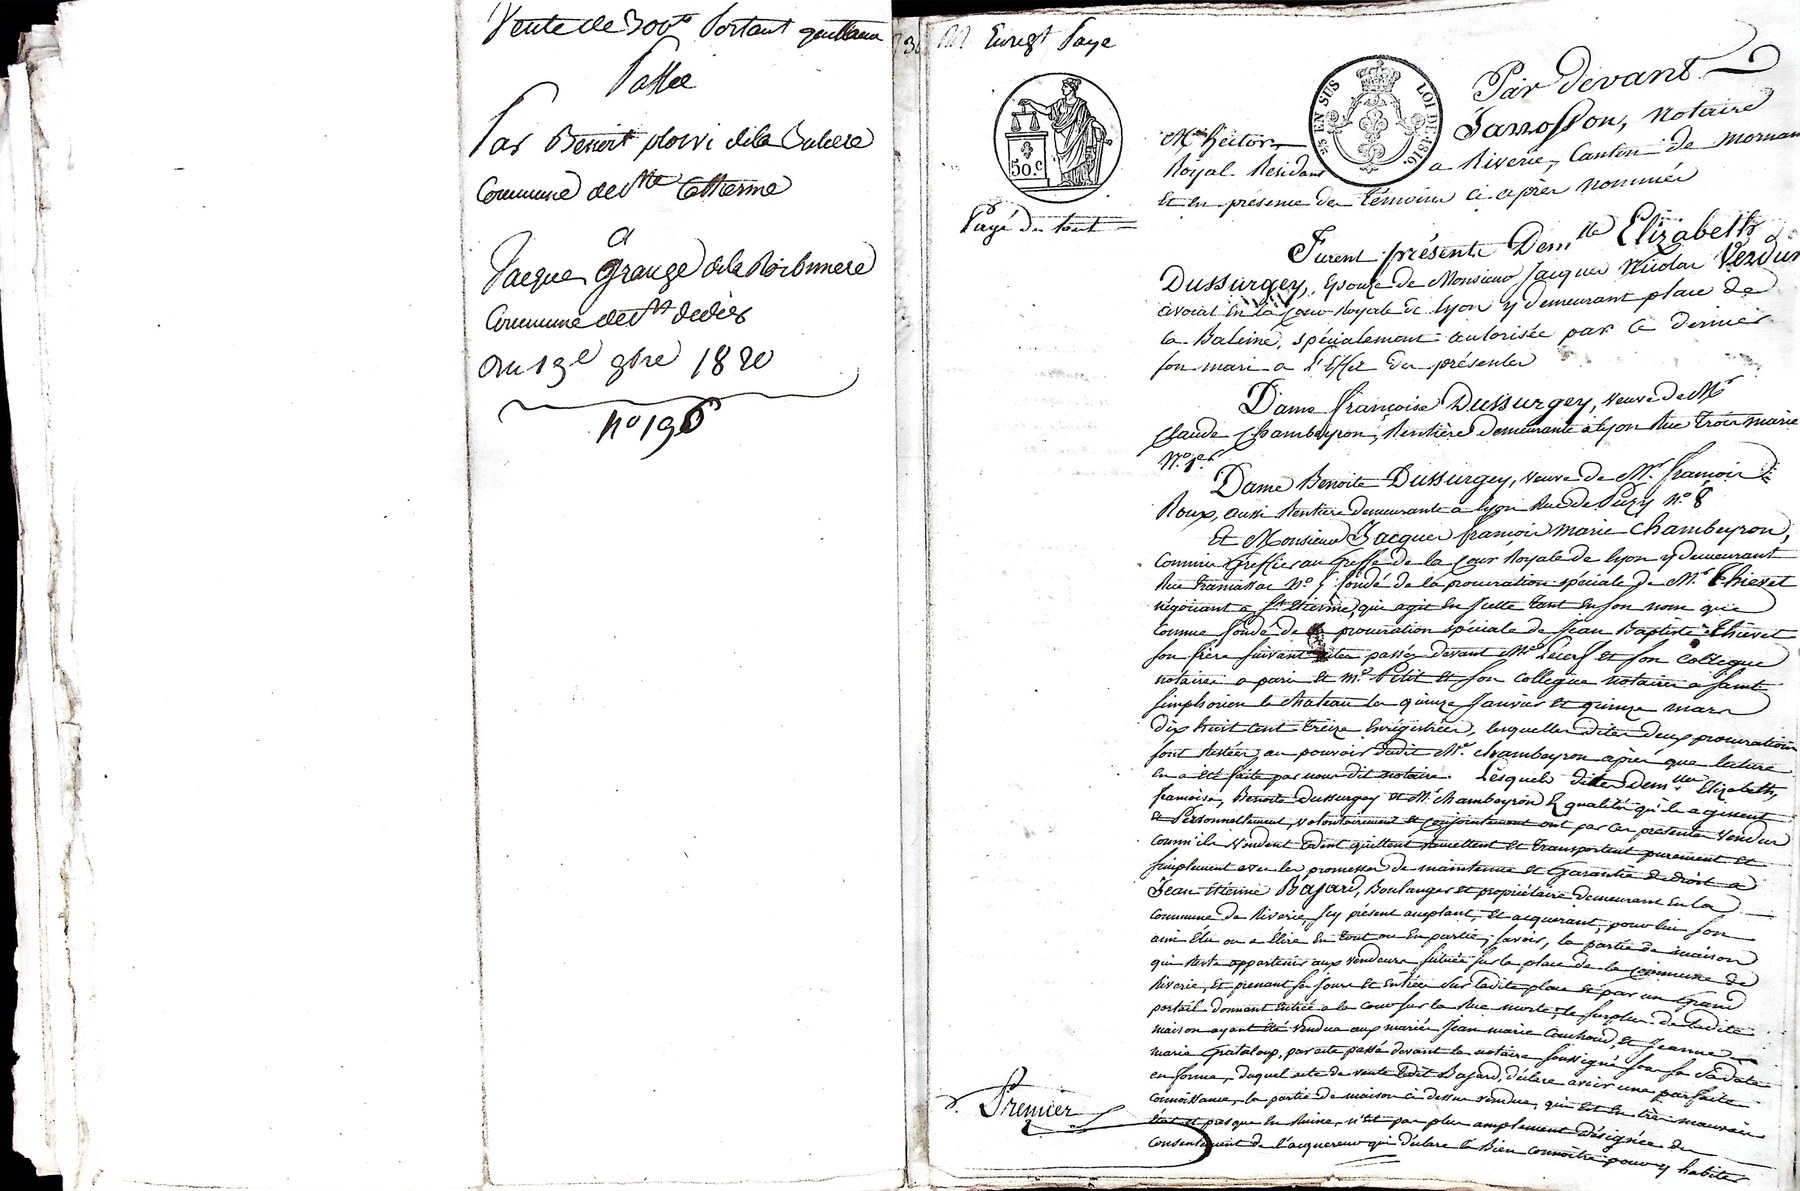 Vente de 300# Portant quittance
Passée
Par Benoit ploivi dela
Commune de Ste Catherine
a
Jacque Grange dela Ribonnere
Commune de St didier
Du 19e 9bre 1820
no 196
Enregt Paye
50.c
25 EN SUS LOI DE 1816.
Payé du tout
Par devant
Me hector Janosson, Notaire
Royal Residant a Riverie, Canton de mornan
et en présence des témoins ci après nommés
Furent présents Demlle Elizabeth
Dussurgey, Epouse de Monsieur Jacques Nicolas Verdun
avocat en la Cour Royale de Lyon y demeurant place de
la Baleine, spécialement autorisée par ce dernier
son mari a l'effet des présentes
Dame françoise Dussurgey, veuve de Mr
Claude Chambeyron, Rentière demeurante a Lyon Rue trois marie
No. 1er
Dame Benoite Dussurgey, veuve de Mr. françois
Roux, aussi Rentiere demeurante a Lyon Rue de Puzy no 8
Et Monsieur Jacques françois marie Chambeyron,
Commis Greffier au Greffe de la Cour Royale de Lyon y demeurant
Rue tramassac No. 5 fondé de la procuration spéciale de Mr. Thievet
négociant a St. Etienne, qui agit en icelle tant en son nom que
comme fondé de procuration spéciale de Jean Baptiste Thievet
son frère suivant actes passés devant Me. et son Collegue
notaires a paris et Me. Petit et son collegue notaires a Saint
Simphorien le chateau les quinze Janvier et quinze mars
dix huit cent treize Enrégistrées, lesquelles dites deux procurations
sont Restées au pouvoir dudit Mr. Chambeyron après que lecture
en a été faite par nous dit notaire. Lesquels dites Demlles Elizabeth,
françoise, Benoite Dussurgey et Mr. Chambeyron Es qualités qu'ils agissent
et Personnellement, volontairement et conjointement ont par ces présentes vendu
comm'ils vendent cedent quittent remettent et transportent purement et
simplement avec les promesses de maintenue et Garantie de droit a
Jean Etienne Bajard, Boulanger et propriétaire demeurant en la
Commune de Riverie, Icy présent acceptant, et acquerant, pour lui son
ami élu ou a élire en tout ou en partie, savoir, la partie de maison
qui reste appartenir aux vendeurs située sur la place de la Commune de
Riverie, et prenant ses jours et entrées sur ladite place et par un Grand
portail donnant entrée a la cour sur la Rue morte, le surplus de ladite
maison ayant été vendue aux mariés Jean marie Couchoud, et Jeanne
marie Grataloup, par acte passé devant le notaire soussigné sous sa date
en forme, duquel acte de vente ledit Bajard, déclare avoir une parfaite
Connoissance, la partie de maison ci dessus vendue, qui est en très mauvais
état et presque en Ruine, n'est pas plus amplement désignée du
Consentement de l'acquereur qui déclare la Bien connoitre pour y habiter
Premier